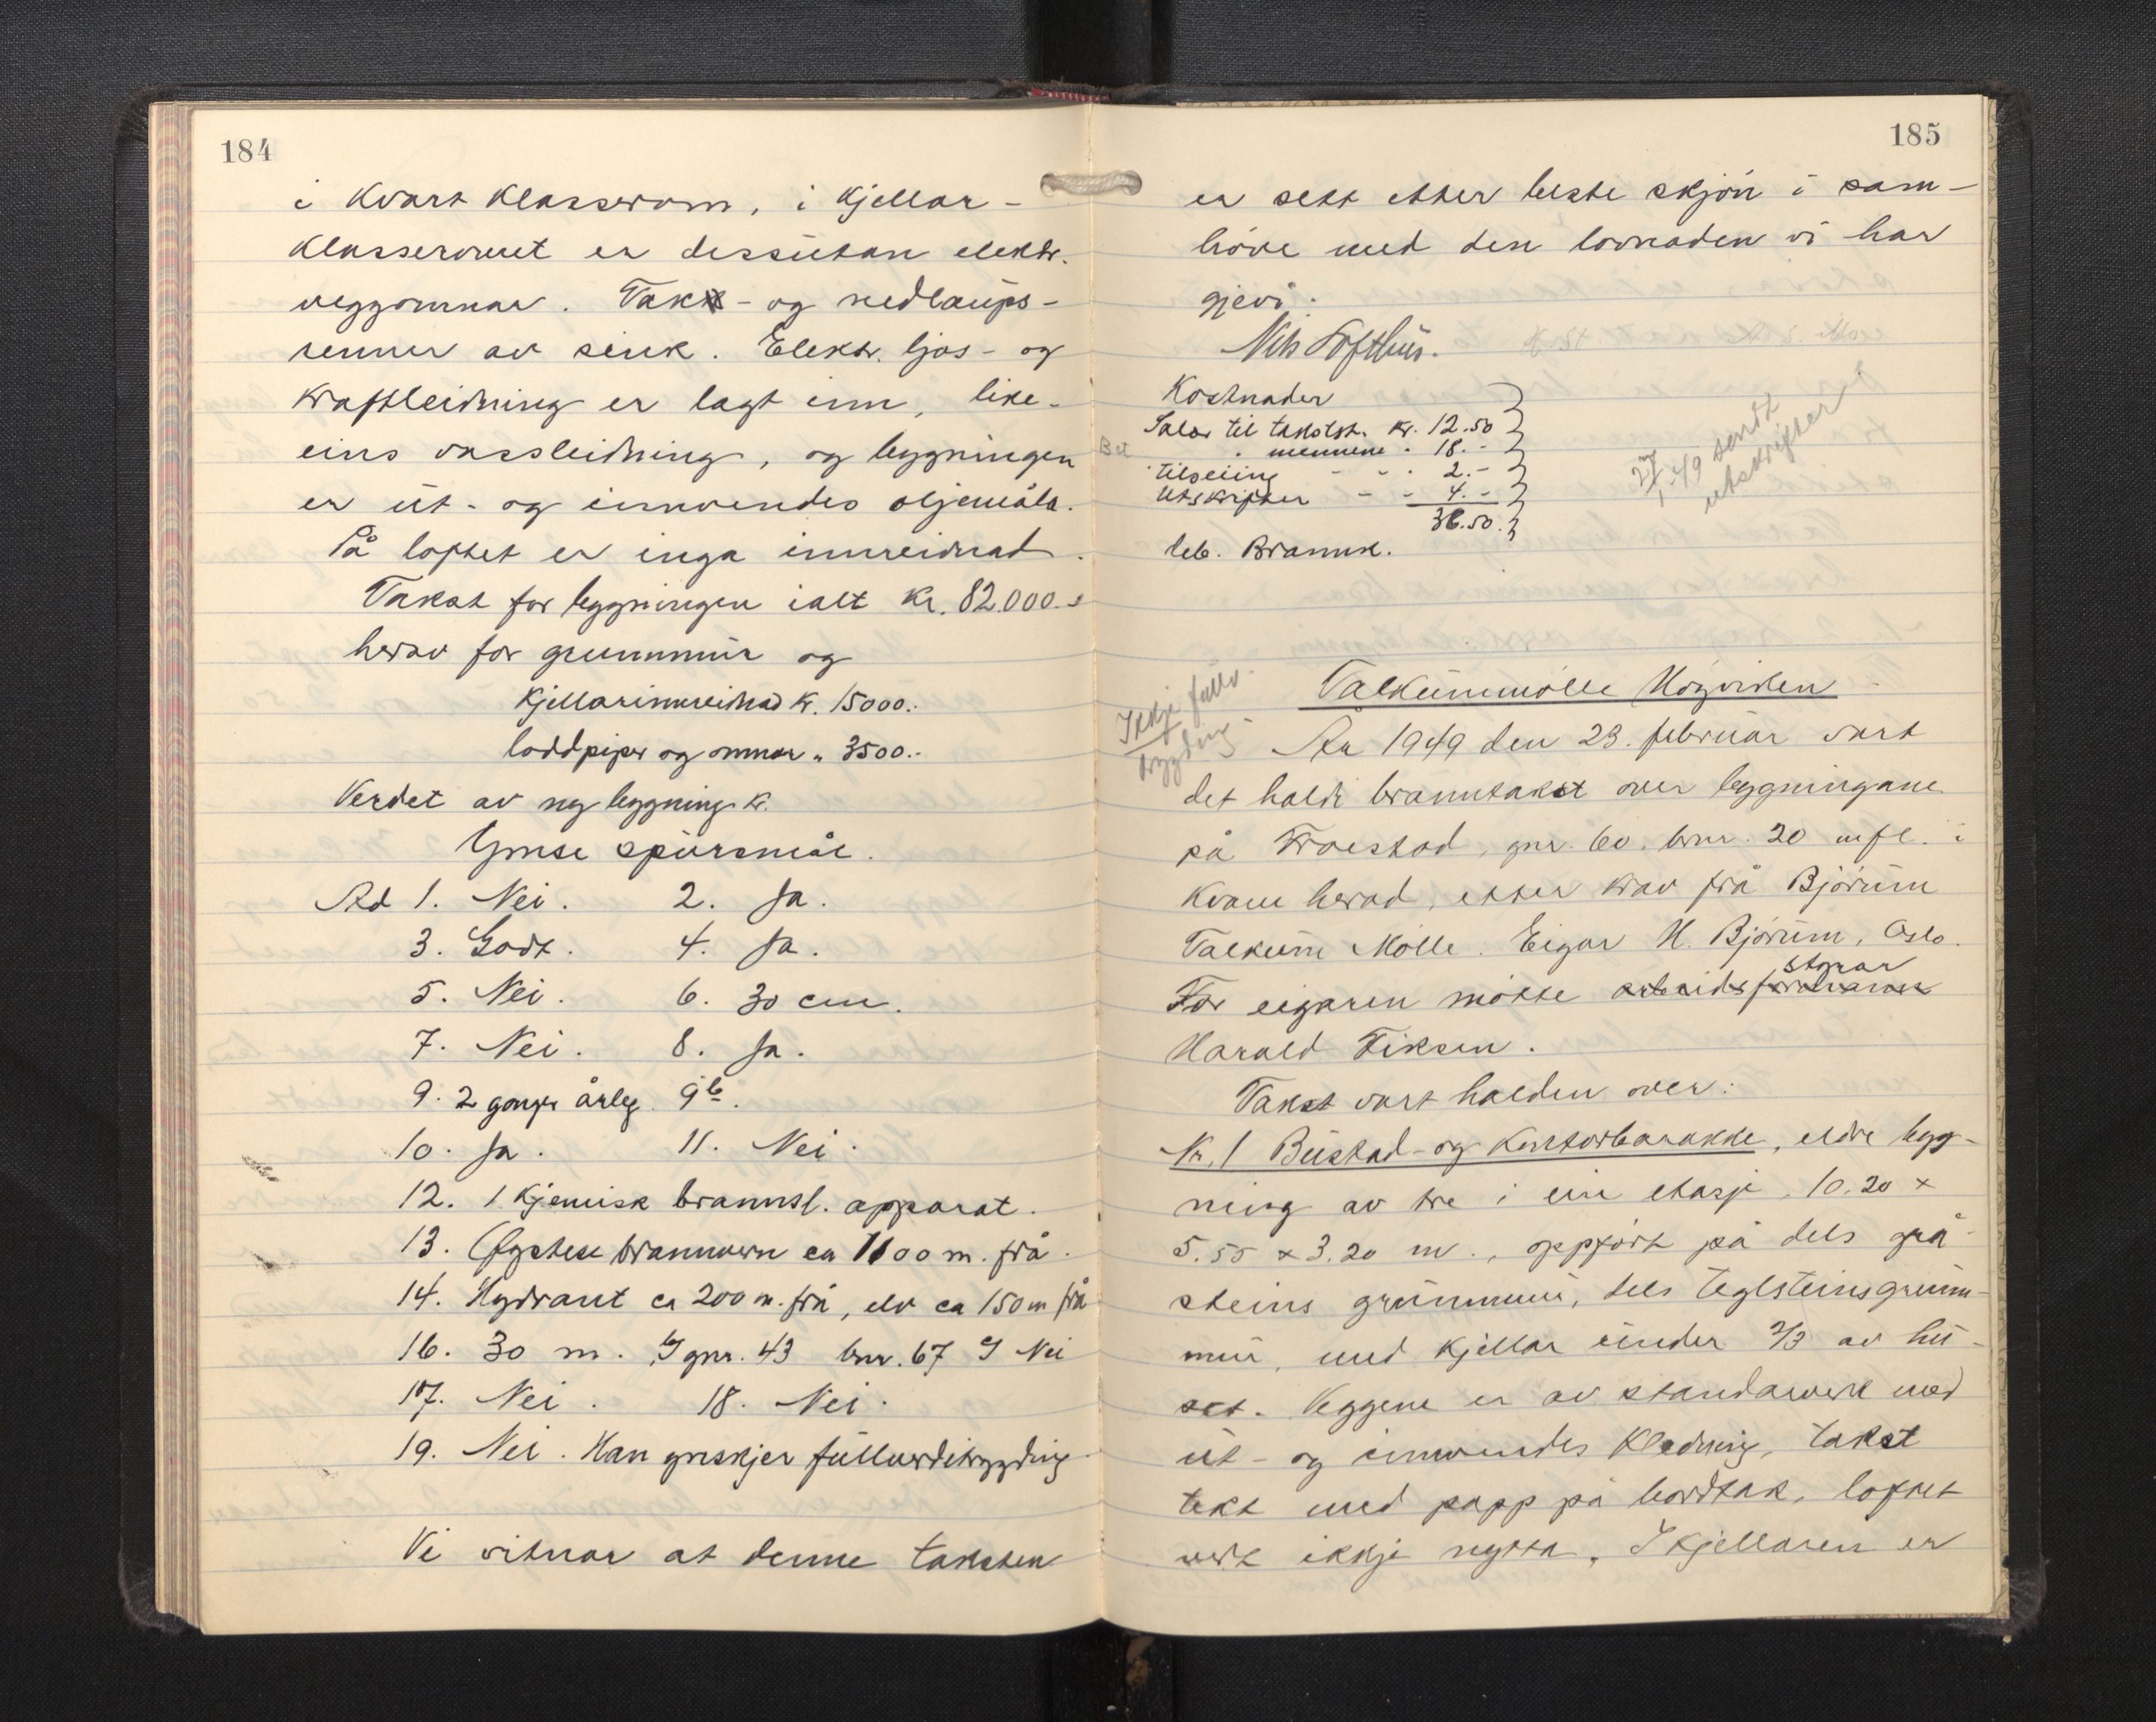 184
i kvart klasserom, i kjellar-
klasseromet er dessutan elektr.
veggomnar. Tak- og nedlaups-
renner av sink. Elektr. ljos- og
kraftleidning er lagt inn, like-
eins vassleidning, og bygningen
er ut- og innvendes oljemåla.
På loftet er inga innreidnad.
Takst for bygningen ialt kr. 82.000.-
herav for grunnmur og
kjellarinnreidnad kr. 15000.-
loddpiper og omnar " 3500.-
Verdet av ny bygning kr.
Ymse spursmål.
Ad 1. Nei. 2. Ja.
3. Godt. 4. Ja.
5. Nei. 6. 30 cm.
7. Nei. 8. Ja.
9. 2 gonger årleg. 9b.
10. Ja. 11. Nei.
12. 1 kjemisk brannsl. apparat.
13. Øystese brannvern ca 1100 m. frå.
14. Hydrant ca 200 m. frå, elv ca 150 m frå
16. 30 m. gnr. 43 bnr. 67 Nei
17. Nei. 18. Nei.
19. Nei. Han ynskjer fullverditrygding
Vi vitnar at denne taksten
185
er sett etter beste skjön i sam-
høve med den lovnaden vi har
gjevi.
Nils Tofthus.
Kostnader
Salær til takstst. kr. 12.50
Bet " mennene " 18.-
tilseiing - - " 2.-
Utskrifter - - 4.-
36.50.
deb. Brannk.
27/1-49 sendt
utskrifter
Ikkje fullv.
trygding
Talkummølle Høgviken
År 1949 den 23. februar vart
det haldi branntakst over bygningane
på Froestad, gnr. 60. bnr. 20 mfl. i
Kvam herad, etter krav frå Bjørum
Talkum Mølle. Eigar H. Bjørum, Oslo.
styrar
For eigaren møtte arbeidsformann
Harald Fiksen.
Takst vart halden over:
Nr. 1 Bustad- og kontorbarakke, eldre byg-
ning av tre i ein etasje, 10.20 x
5.55 x 3.20 m., oppført på dels grå-
steins grunnmur, dels teglsteinsgrunn-
mur, med kjellar under 2/3 av hu-
set. Veggene er av standarverk med
ut- og innvendes kledning, taket
tekt med papp på bordtak, loftet
vert ikkje nytta, I kjellaren er